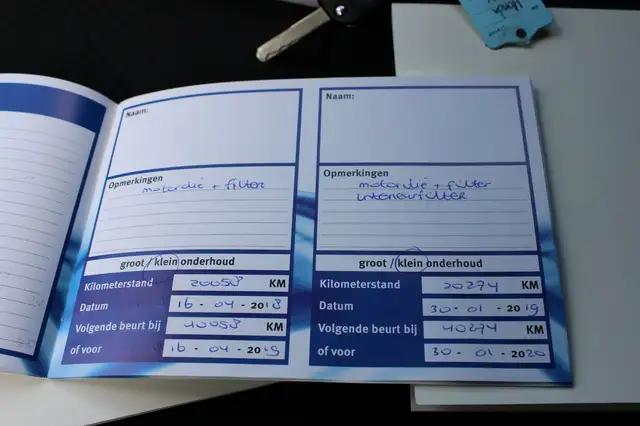 Naam:
Opmerkingen
motorolie + filter
groot / klein onderhoud
Kilometerstand 20053 KM
Datum 16 - 04 - 2018
Volgende beurt bij 40053 KM
of voor 16 - 04 - 2019
Naam:
Opmerkingen
motorolie + filter
interieurfilter
groot / klein onderhoud
Kilometerstand 20274 KM
Datum 30 - 01 - 2019
Volgende beurt bij 40274 KM
of voor 30 - 01 - 2020